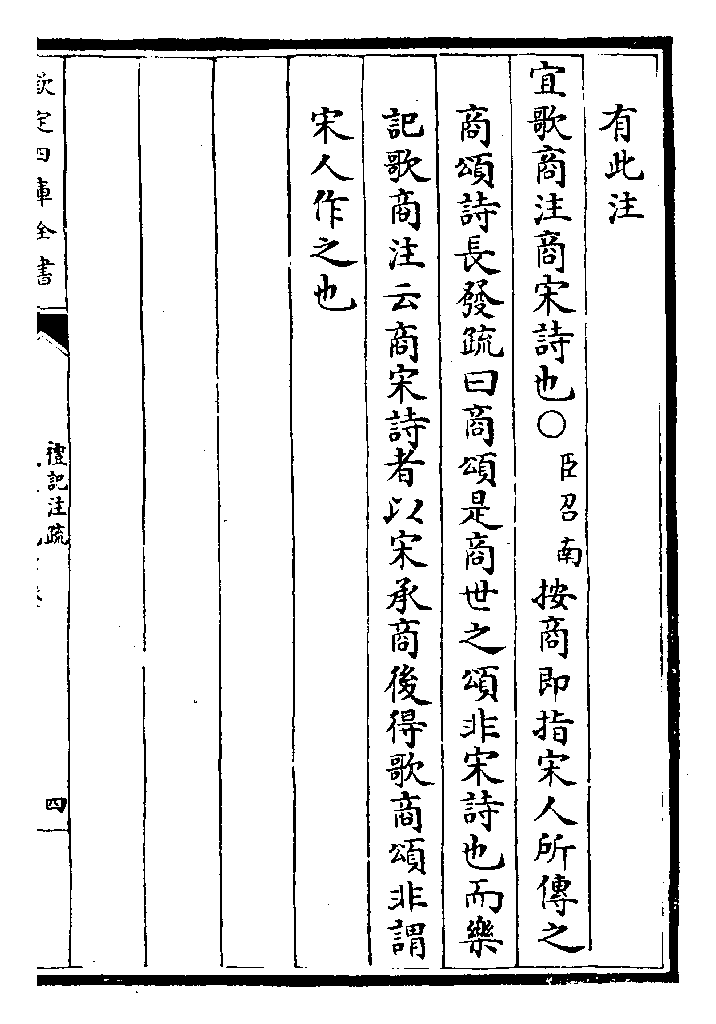 有此注
宜歌商注商宋詩也○臣召南按商即指宋人所傳之
商頌詩長發疏曰商頌是商世之頌非宋詩也而樂
記歌商注云商宋詩者以宋承商後得歌商頌非謂
宋人作之也
欽定四庫全書
禮記注疏
四